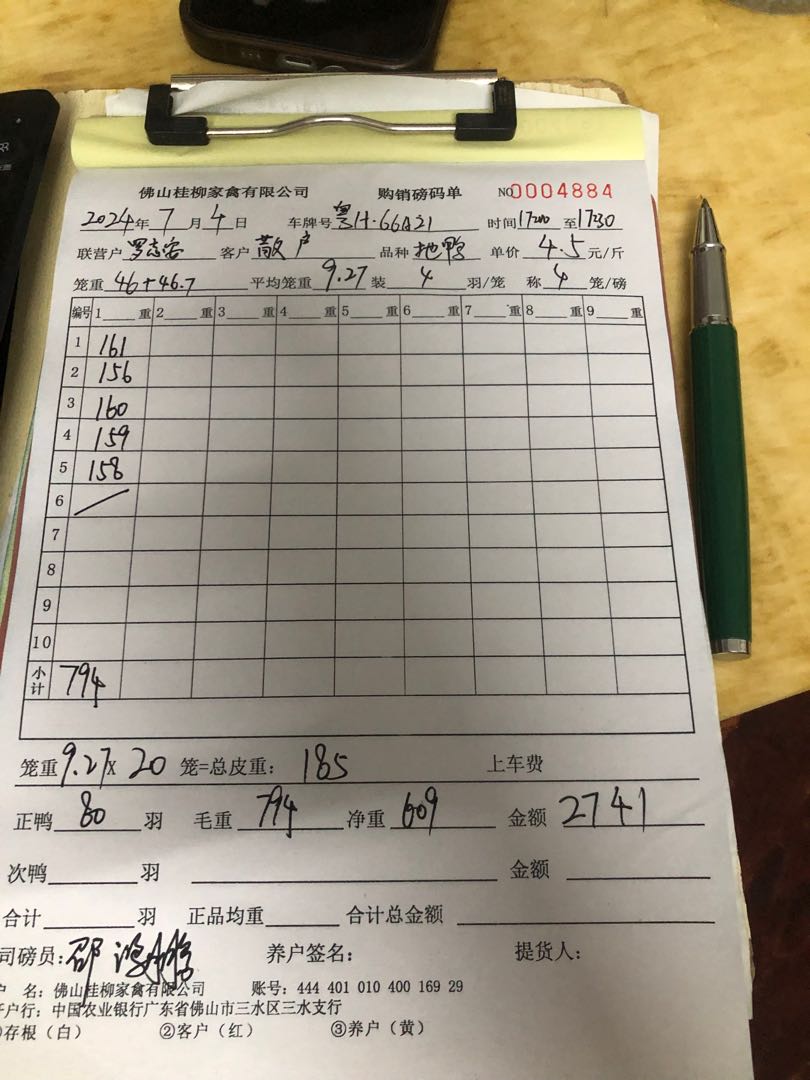 佛山桂柳家禽有限公司 购销磅码单 NO 0004884
2024年 7月 4日 车牌号 粤H·66A21 时间 17:20 至 17:30
联营户 客户 散户 品种 把鸭 单价 4.5 元/斤
笼重 46+46.7 平均笼重 9.27 装 4 羽/笼 称 4 笼/磅
编号 1 重 2 重 3 重 4 重 5 重 6 重 7 重 8 重 9 重
1 161
2 156
3 160
4 159
5 158
6 /
7
8
9
10
小计 794
笼重 9.27 X 20 笼=总皮重: 185 上车费
正鸭 80 羽 毛重 794 净重 609 金额 2741
次鸭 羽 金额
合计 羽 正品均重 合计总金额
司磅员: 养户签名: 提货人:
户 名: 佛山桂柳家禽有限公司 账号: 444 401 010 400 169 29
开户行: 中国农业银行广东省佛山市三水区三水支行
①存根（白） ②客户（红） ③养户（黄）